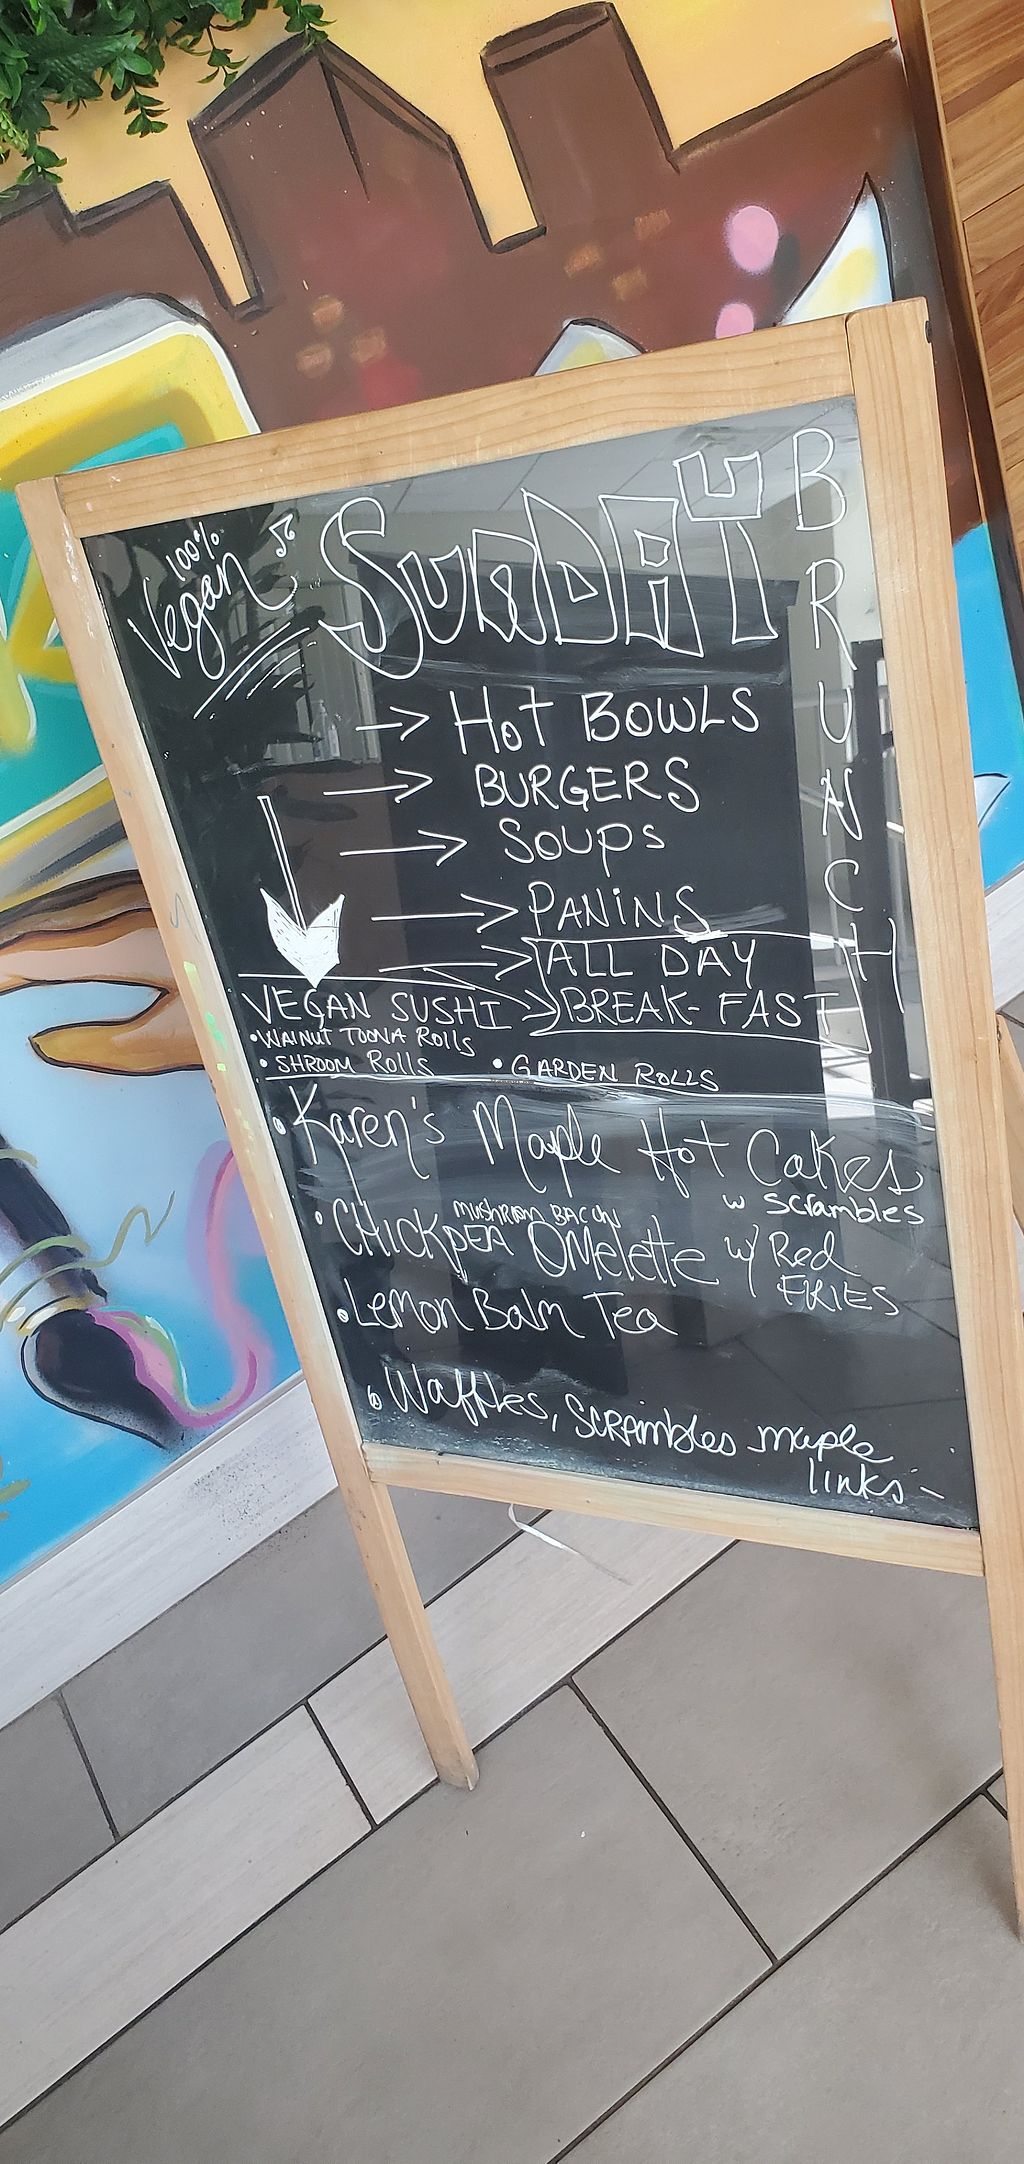 100%
Vegan
SUNDAY
BRUNCH
HOT BOWLS
BURGERS
Soups
PANINS
ALL DAY
BREAK-FAST
VEGAN SUSHI
• WALNUT TOONA ROLLS
• SHROOM ROLLS • GARDEN ROLLS
• Karen's Maple Hot Cakes
w scrambles
mushroom BACON
• CHICKPEA OMelette w/ Red
FRIES
• Lemon Balm Tea
• Waffles, SCRAmbles maple
links -